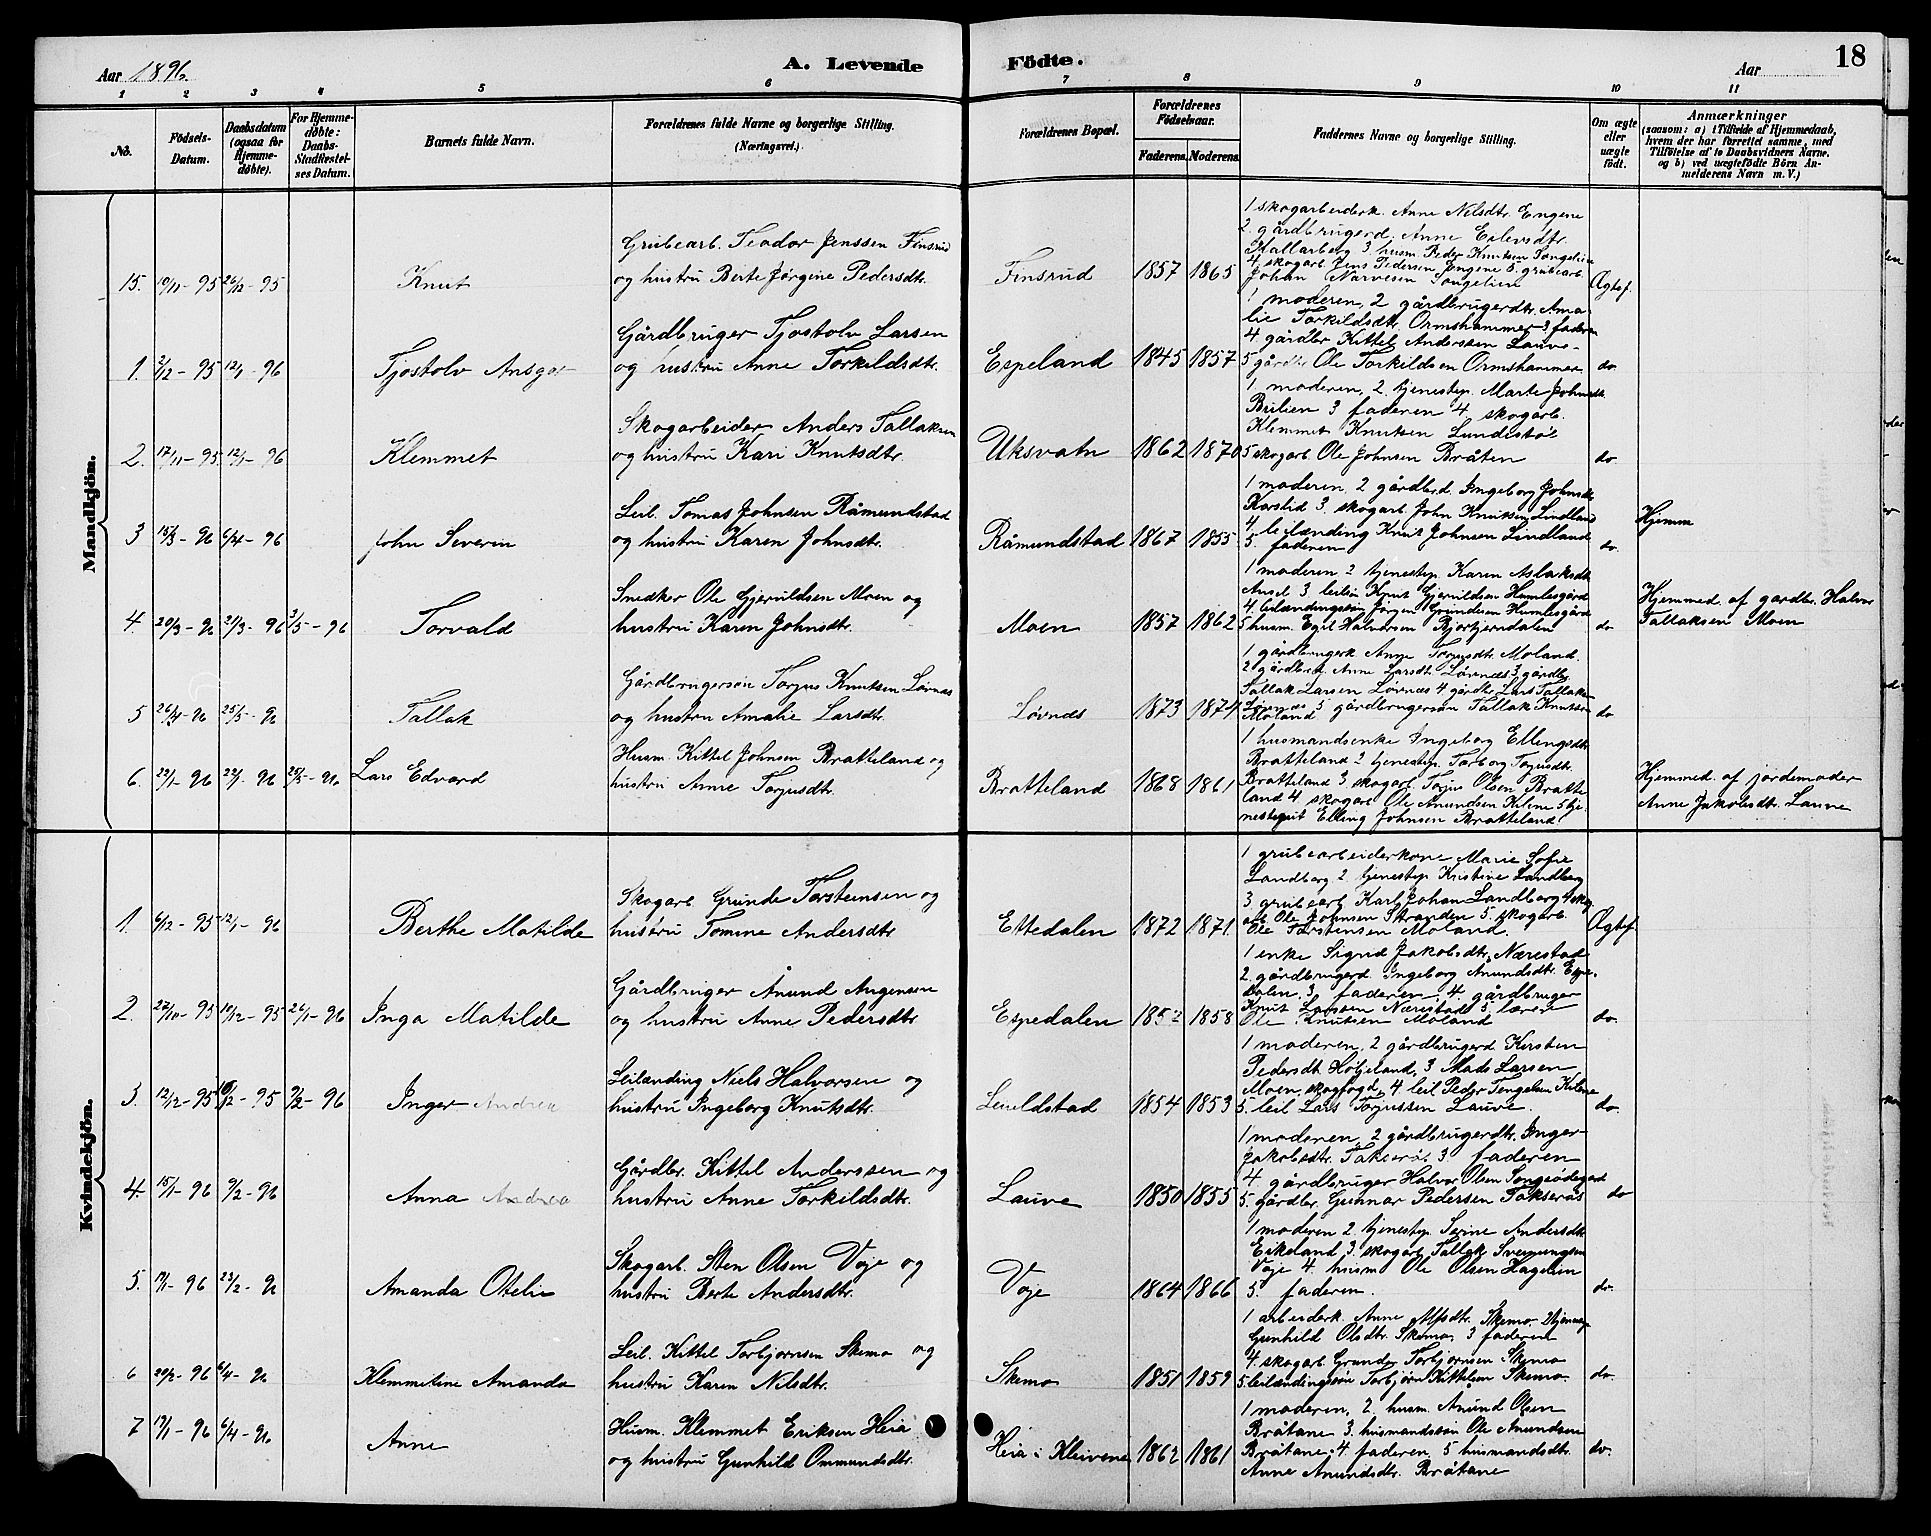 Aar 1896.
A. Levende Födte.
18
Aar
1 2 3 4 5 6 7 8 9 10 11
No.
Födsels-Datum.
Daabsdatum (ogsaa for Hjemme-döbte).
For Hjemme-döbte: Daabs-Stadfæstel-ses Datum.
Barnets fulde Navn.
Forældrenes fulde Navne og borgerlige Stilling. (Næringsvei.)
Forældrenes Bopæl.
Forældrenes Födselsaar.
Faderens. Moderens.
Faddernes Navne og borgerlige Stilling.
Om ægte eller uægte födt.
Anmærkninger
(saasom: a) i Tilfælde af Hjemmedaab, hvem der har forrettet samme, med Tilföielse af to Daabsvidners Navne, og b) ved uægtefödte Börn An-melderens Navn m. V.)
Mandkjön.
15. 19/11-95 26/12-95 Knut
Grubearb. Teodor Jenssen Finsrud
og hustru Berte Jørgine Pedersdtr.
Finsrud 1857 1865
1 skogarbeiderk. Anne Nilsdtr. Engene
2. gårdbrugerd. Anne Eilevsdtr.
Mallarberg 3 husm. Peder Knutsen Songelien
4. skogarb Jens Pedersen Engene 5. grubearb
Johan Narvesen Songelien
Ægtef.
1. 2/12-95 12/1-96 Tjostolv Ansgar
Gårdbruger Tjostolv Larsen
og hustru Anne Torkildsdtr.
Espeland 1845 1857
1 moderen, 2 gårdbrugerdtr. Ama-
lie Torkildsdtr. Ormshammer 3 faderen
4 gårdbr Kittel Anderssen Lauve-
5 gårdbr Ole Torkildsen Ormshammer
do
2. 17/11-95 12/1-96 Klemmet
Skogarbeider Anders Tallaksen
og hustru Kari Knutsdtr.
Uksvatn 1862 1870
1 moderen, 2 tjenestep. Marte Johnsdtr.
Bulien 3 faderen 4. skogarb.
Klemmet Knutsen Lundestøl
5 skogarb Ole Johnsen Bråten
do
3 15/3-96 6/4-96 John Severin
Leil. Tomas Johnsen Råmundstad
og hustru Karen Johnsdtr.
Råmundstad 1867 1855
1 moderen, 2 gårdbrd. Ingeborg Johnsdtr
Karslid 3. skogarb John Knutsen Lindland
4. leilænding Knut Johnsen Lindland
5. faderen
do.
Hjemm
4. 20/3-96 21/3-96 3/5-96 Torvald
Snedker Ole Gjervildsen Moen og
hustru Karen Johnsdtr.
Moen 1857 1862
1 moderen 2 tjenestep. Karen Aslaksdtr
Ansel 3 leilæn Knut Gjervildsen Humlesgård
4. leilændingssøn Jørgen Grundesen Humlesgård
5 husm. Egil Halvorsen Bjortjerndalen
do
Hjemmed. af gardbr. Halvor
Tallaksen Moen
5 26/4-96 25/5-96 Tallak
Gårdbrugersøn Torjus Knutsen Løvnæs
og hustru Amalie Larsdtr.
Løvnæs 1873 1874
1 gårdbrugerk Anne Torjusdtr. Moland.
2 gårdbrd. Anne Larsdtr Løvnæs 3 gårdbr.
Tallak Larsen Løvnæs 4 gårdbr Lars Tallaksen
Løvnæs 5 gårdbrugersøn Tallak Knutsen
Moland
do
6. 22/1-96 22/1-96 25/5-96 Lars Edvard
Husm. Kittel Johnsen Bratteland og
hustru Anne Torjusdtr.
Bratteland 1868 1861
1 husmandsenke Ingeborg Ellingsdtr
Bratteland 2 tjenestep. Torborg Torjusdtr.
Bratteland 3 skogarb. Torjus Olsen Bratte-
land 4 skogarb Ole Amundsen Kilene 5 tje-
nestegut Elling Johnsen Bratteland
Hjemmed. af jordemoder
Anne Jakobsdtr. Lauve
Kvindekjön.
1. 6/12-95 12/1-96 Berthe Matilde
Skogarb. Grunde Torsteinsen og
hustru Tomine Andersdtr
Ettedalen 1872 1871.
1 grubearbeiderkone Marie Sofie
Landberg 2 tjenestep Kristine Landberg
3 grubearb Karl Johan Landberg 4 skog-
arb Ole Johnsen Stranden 5. skogarb.
Ole Torstensen Moland.
Ægtef.
2. 27/10-95 19/12-95 26/1-96 Inga Matilde
Gårdbruger Ånund Aagensen
og hustru Anne Pedersdtr
Espedalen 1852 1858
1 enke Sigrid Jakobsdtr. Nærestad
2 gårdbrugerd. Ingeborg Anundsdtr. Espe-
dalen, 3 faderen, 4 gårdbruger
Knut Larssen Nærestad 5. lærer
Ole Knutsen Moland
do.
3. 12/12-95 19/12-95 9/2-96 Inger Andrea
Leilænding Niels Halvorsen og
hustru Ingeborg Knutsdtr.
Leveldstad 1854 1853
1 moderen, 2 gårdbrugerd Kirsten
Pedersdt. Høljeland, 3 Mads Larsen
Moen, skogfogd, 4 leil Peder Tengelsen Kilene
5. leil Lars Torjussen Lauve.
do.
4. 15/1-96 9/2-96 Anna Andrea
Gårdbr. Kittel Anderssen og
hustru Anne Torkildsdtr.
Lauve 1850 1855
1 moderen, 2 gårdbrugerdtr. Inger
Jakobsdtr. Takserås 3. faderen
4. gårdbruger Halvor Olsen Songeødegård
5. gårdbr. Gunnar Pedersen Takserås
do
5. 19/1-96 23/2-96 Amanda Otelie
Skogarb. Sten Olsen Voje og
hustru Berte Andersdtr.
Voje 1864 1866
1 moderen 2 tjenestep Serine Andersdtr
Eikeland, 3. skogarb Tallak Sveinungsen
Voje 4. husm Ole Olsen Hagelien
5. faderen.
do.
6 20/2-96 6/4-96 Klemmetine Amanda
Leil. Kittel Torbjørnsen Skimo og
hustru Karen Nilsdtr.
Skimo 1851 1859
1 arbeiderk. Anne Alfsdtr. Skimo 2 tjenestep
Gunhild Olsdtr. Skimo, 3 faderen
4. skogarb Grunde Torbjørnsen Skimo
5. leilændingssøn Torbjørn Kittelsen Skimo.
do.
7 19/1-96 6/4-96 Anne
Husm. Klemmet Eriksen Heia
og hustru Gunhild Ommundsdtr.
Heia i Kleivene 1862 1861
1 moderen, 2. husm. Anund Olsen
Bråtane 3. husmandssøn Ole Anundsen
Bråtane, 4. faderen, 5 husmandsdtr.
Anne Anundsdtr. Bråtane
do.